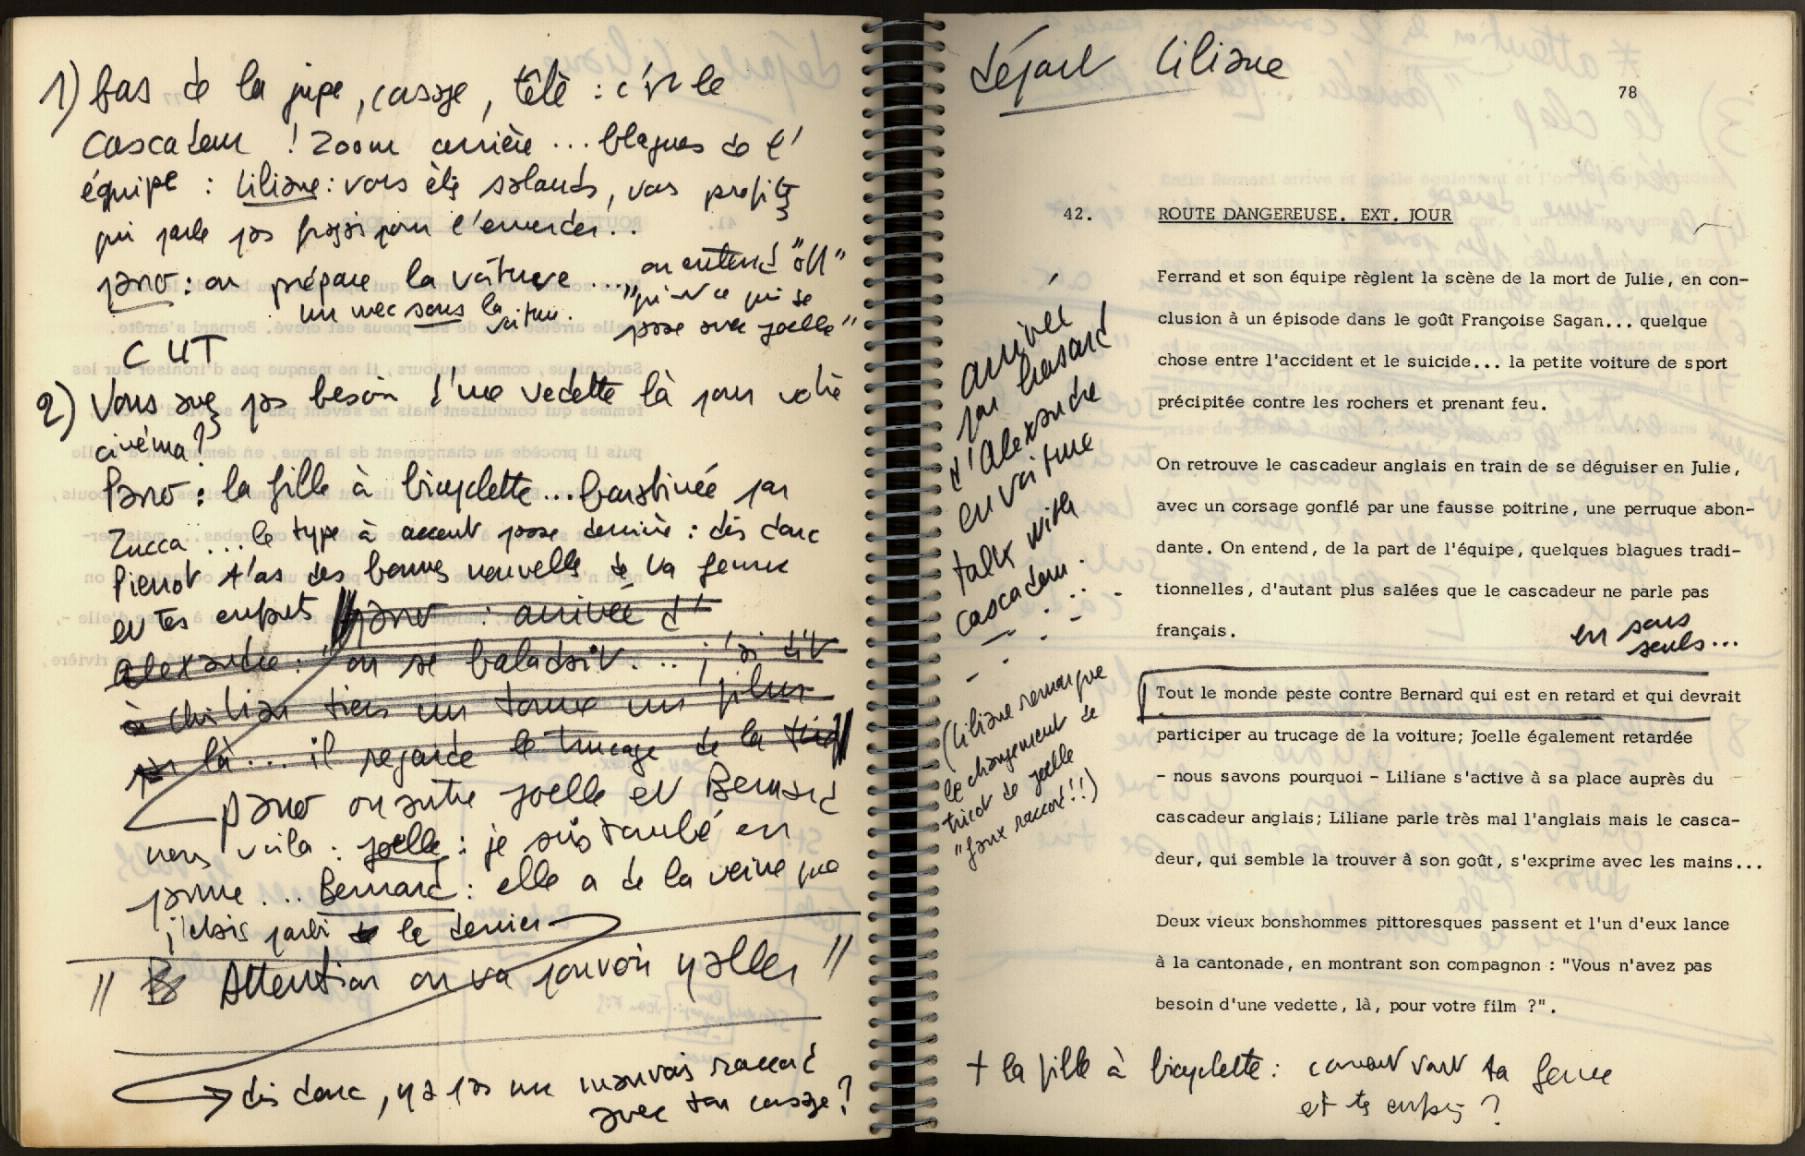 1) bas de la jupe, corsage, tête : c'est le
cascadeur ! Zoom arrière ... blagues de l'
équipe : Liliane : vous êtes salauds, vous profitez
qui parle pas français pour l'emmerder...
pano : on prépare la voiture ... on entend "off"
un mec sous la voiture.
"qu'est ce qui se
passe avec Joelle"
CUT
2) Vous avez pas besoin d'une vedette là pour votre
cinéma ?
Pano : la fille à bicyclette ... baratinée par
Zucca ... le type à accent passe derrière : dis donc
Pierrot t'as des bonnes nouvelles de ta femme
et tes enfants pano : arrivée d'
Alexandre : "on se baladait ... j'ai dit
à Christian tiens on tourne un film
par là ... il regarde le trucage de la
pano on entre Joelle et Bernard
nous voilà : Joelle : je suis tombé en
panne ... Bernard : elle a de la veine que
j'étais parti le dernier
" Attention on va pouvoir y aller "
dis donc, y a pas un mauvais raccord
avec ton corsage ?
départ Liliane
78
42. ROUTE DANGEREUSE. EXT. JOUR
Ferrand et son équipe règlent la scène de la mort de Julie, en con-
clusion à un épisode dans le goût Françoise Sagan... quelque
chose entre l'accident et le suicide... la petite voiture de sport
précipitée contre les rochers et prenant feu.
arrivée
par hasard
d'Alexandre
en voiture
talk with
cascadeur.
On retrouve le cascadeur anglais en train de se déguiser en Julie,
avec un corsage gonflé par une fausse poitrine, une perruque abon-
dante. On entend, de la part de l'équipe, quelques blagues tradi-
tionnelles, d'autant plus salées que le cascadeur ne parle pas
français.
en sous
seuls...
Tout le monde peste contre Bernard qui est en retard et qui devrait
participer au trucage de la voiture; Joelle également retardée
- nous savons pourquoi - Liliane s'active à sa place auprès du
cascadeur anglais; Liliane parle très mal l'anglais mais le casca-
deur, qui semble la trouver à son goût, s'exprime avec les mains...
(Liliane remarque
le changement de
tricot de Joelle
"faux raccord!!)
Deux vieux bonshommes pittoresques passent et l'un d'eux lance
à la cantonade, en montrant son compagnon : "Vous n'avez pas
besoin d'une vedette, là, pour votre film ?".
+ la fille à bicyclette : comment vont ta femme
et tes enfants ?